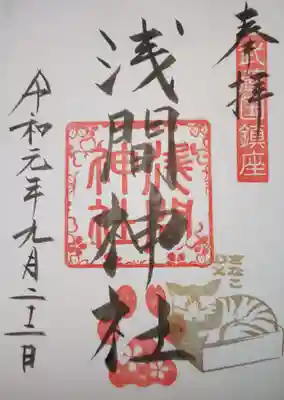 奉拝
武蔵国鎮座
浅間神社
浅間
神社
令和元年九月二十二日
きなこ